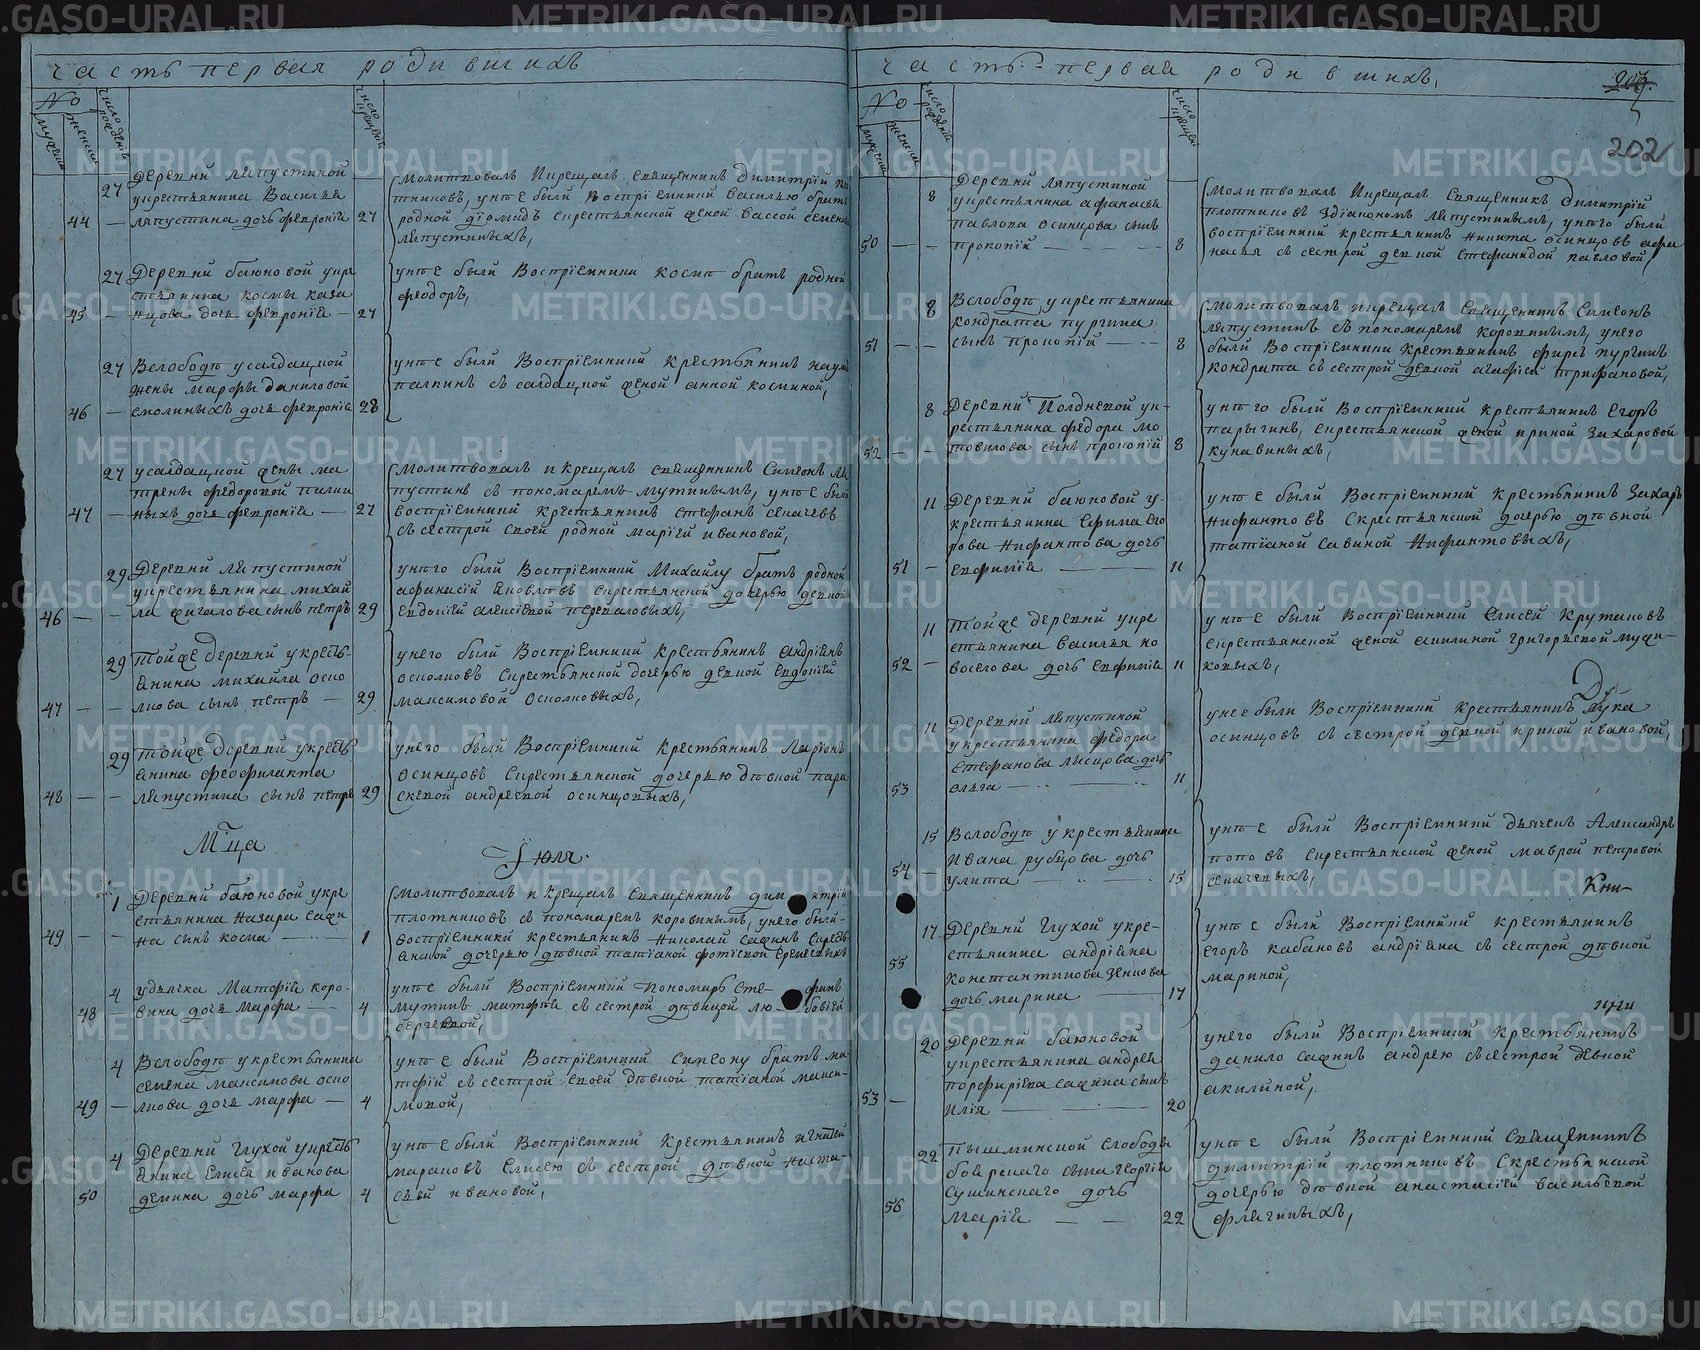 часть первая родившихъ
No
мужеска
женска
число рожденія
число крещенія
27 Деревни ляпустиной
укрестьянина Василья
44 — ляпустина дочь февронія 27
Молитвовалъ Икрещалъ священникъ димитрій пло
тниковъ, унее были Восприемники Василью братъ
родной діомидъ скрестьянской женой вассой семено
ляпустиныхъ,
27 Деревни баюновой укре
стьянина космы каза
45 — нцова дочь февронія — 27
унее были Восприемники космы братъ родной
феодоръ,
27 Вслободе усалдацкой
жены марфы даниловой
46 — смолиныхъ дочь февронія 28
унее были Восприемники крестьянинъ наумъ
палкинъ съ салдацкой женой анной косминой,
27 усалдацкой жены ма
трены федоровой палки
47 — ныхъ дочь февронія — 27
Молитвовалъ и крещалъ священникъ Симеонъ ля
пустинъ съ пономаремъ мутинымъ, унее были
восприемники крестьянинъ стефанъ сначевъ
съ сестрой своей родной марией ивановой,
29 Деревни ляпустиной
укрестьянина михаи
46 — — ла фигалова сынъ петръ 29
унего были Восприемники Михаилу братъ родной
афанасій яковлевъ скрестьянской дочерью девкой
евдокией алексиевой переваловыхъ,
29 тойже деревни укресть
янина михаила оско
47 — — лкова сынъ петръ — 29
унего были Восприемники крестьянинъ андріянъ
осколковъ скрестьянской дочерью девкой евдокией
максимовой Осколковыхъ,
29 тойже деревни укресть
янина феофилакта
48 — — ляпустина сынъ петръ 29
унего были Восприемники крестьянинъ ларионъ
осинцовъ скрестьянской дочерью девкой пара
скевой андреевой осинцовыхъ,
Мца Июля
1 Деревни баюновой укре
стьянина Назара сафи
49 — — на сынъ косма — 1
Молитвовалъ и крещалъ священникъ димитрій
плотниковъ съ пономаремъ коровинымъ, унего были
восприемники крестьянинъ николай сафинъ скресть
янской дочерью девкой татианой фотиевой еремеевыхъ
4 удьячка Матфія коро
48 — вина дочь Марфа — 4
унее были Восприемники Пономарь Сте фанъ
мутинъ матфея съ сестрой девицой лю бовией
сергеевой,
4 Вслободе укрестьянина
семена максимова оско
49 — лкова дочь марфа — 4
унее были Восприемники Симеону братъ ма
тфій съ сестрой своей девкой татианой макси
мовой,
4 Деревни глухой укресть
янина Елисея иванова
50 демина дочь марфа 4
унее были Восприемники крестьянинъ игнатей
марановъ Елисею съ сестрой девкой наста
сьей ивановой,
часть первая родившихъ,
202
No
мужеска
женска
число рожденія
число крещенія
8 Деревни ляпустиной
укрестьянина афанасья
павлова осинцова сынъ
50 — — прокопій — — — 8
Молитвовалъ Икрещалъ Священникъ Димитрій
плотниковъ здіакономъ ляпустинымъ, унего были
восприемники крестьянинъ никита осинцовъ афа
насья съ сестрой девкой стефанидой павловой,
8 Вслободе укрестьянина
кондрата пургина
51 — — сынъ прокопій — — 8
Молитвовалъ икрещалъ Священникъ Симеонъ
ляпустинъ съ пономаремъ коровинымъ, унего
были Восприемники крестьянинъ фирсъ пургинъ
кондрата съ сестрой девкой агафией трифановой,
8 Деревни Полдневой ук
рестьянина федора мо
52 — — товилова сынъ прокопій 8
унего были Восприемники крестьянинъ Егоръ
парыгинъ, скрестьянской женой ириной захаровой
кунавиныхъ,
11 Деревни баюновой у
крестьянина Ефима Его
рова Нифантова дочь
51 — Евфимія — — 11
унее были Восприемники крестьянинъ захаръ
нифантовъ Скрестьянской дочерью девкой
татианой савиной Нифантовыхъ,
11 Тойже деревни укре
стьянина василья но
52 — воселова дочь евфимія 11
унее были Восприемники Елисей Крутаковъ
скрестьянской женой акилиной григорьевой
ковыхъ,
11 Деревни ляпустиной
укрестьянина федора
Стефанова лисцова дочь
53 олга — — 11
унее были Восприемники крестьянинъ лука
осинцовъ съ сестрой девкой ириной ивановой,
15 Вслободе укрестьянина
Ивана рубцова дочь
54 — улита — — 15
унее были Восприемники дьячекъ Александръ
поповъ скрестьянской женой маврой петровой
сначевыхъ,
17 Деревни Глухой укре
стьянина андріяна
55 Константинова зенкова
дочь марина — 17
унее были Восприемники крестьянинъ
Егоръ кабановъ андріяна съ сестрой девкой
мариной,
20 Деревни баюновой
укрестьянина андрея
порфиріева сафина сынъ
53 — илія — — 20
унего были Восприемники крестьянинъ
данило сафинъ андрею съсестрой девкой
акилиной,
22 Пышминской слободы
боярскаго сына георгія
Сушинскаго дочь
56 Марія — — 22
унее были Восприемники Священникъ
димитрій плотниковъ Скрестьянской
дочерью девкой анастасией васильевой
флягиныхъ,
METRIKI.GASO-URAL.RU